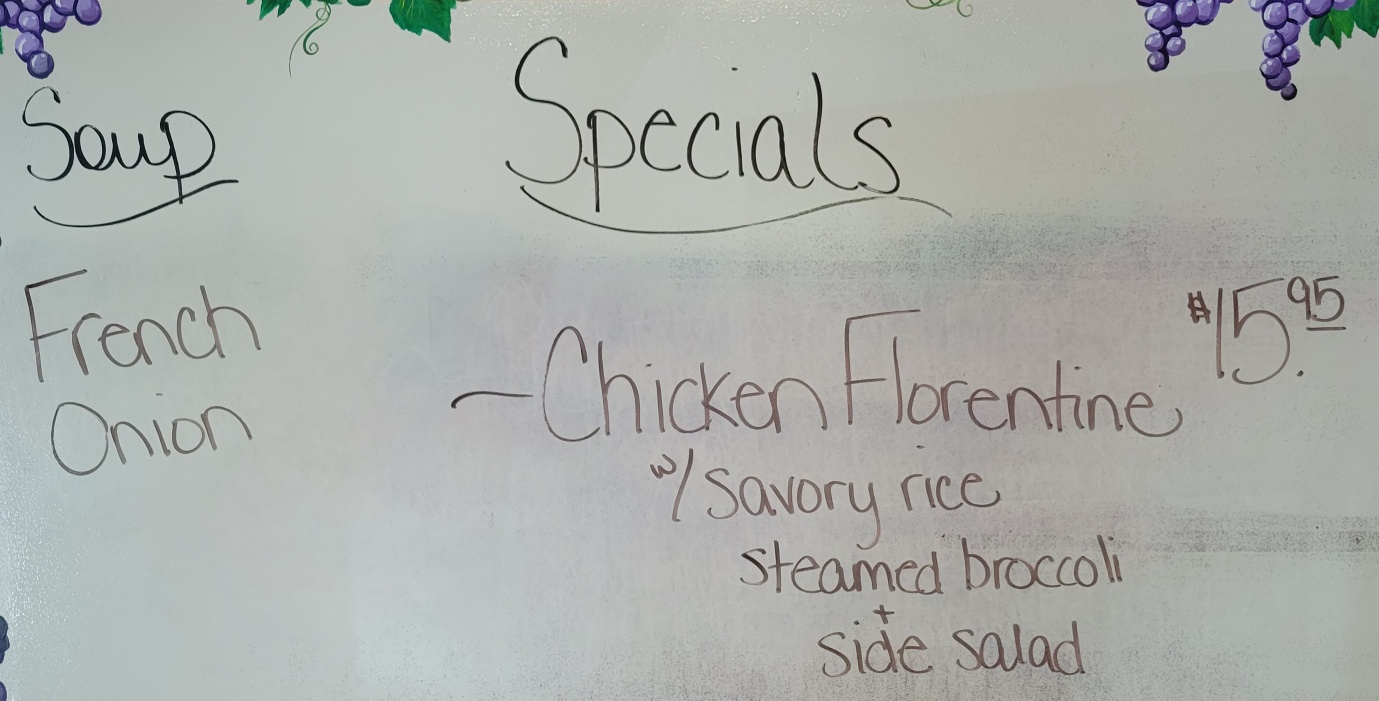 Soup
French
Onion
Specials
~Chicken Florentine $15.95
w/ Savory rice
steamed broccoli
+
side salad